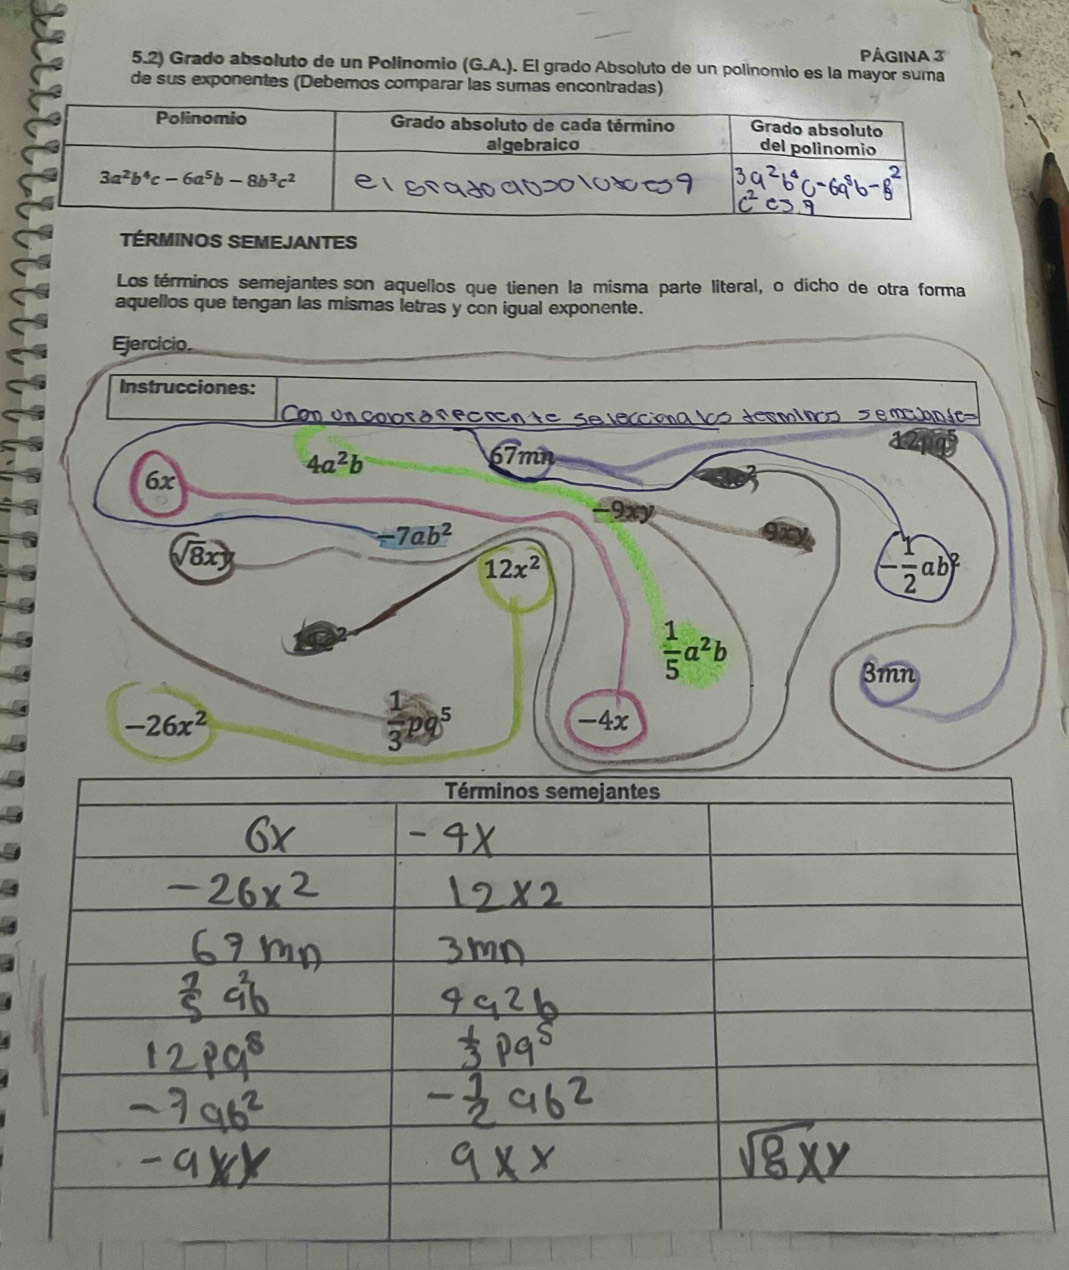 PÁGINA 3
5.2) Grado absoluto de un Polinomio (G.A.). El grado Absoluto de un polinomio es la mayor suma
de sus exponentes (Debemos comparar las sumas encontradas)
Polinomio
Grado absoluto de cada término
algebraico
Grado absoluto
del polinomio
3a²b⁴c − 6a⁵b − 8b³c²
el grado absoluto es 9
3a²b⁴c-6a⁵b-8²
c² es 9
TÉRMINOS SEMEJANTES
Los términos semejantes son aquellos que tienen la misma parte literal, o dicho de otra forma
aquellos que tengan las mismas letras y con igual exponente.
Ejercicio.
Instrucciones:
Con un color diferente selecciona los terminos semejantes
12pq⁵
67mn
4a²b
6x
−9xy
9xy
−7ab²
√8xy
12x²
−1/2 ab²
1/5 a²b
3mn
−26x²
1/3 pq⁵
−4x
Términos semejantes
6x -4x
-26x2 12x2
67mn 3mn
1/5 a²b 4a2b
12pq⁵ 1/3 pq⁵
-7ab² -1/2 ab2
-9xy 9xx √8xy